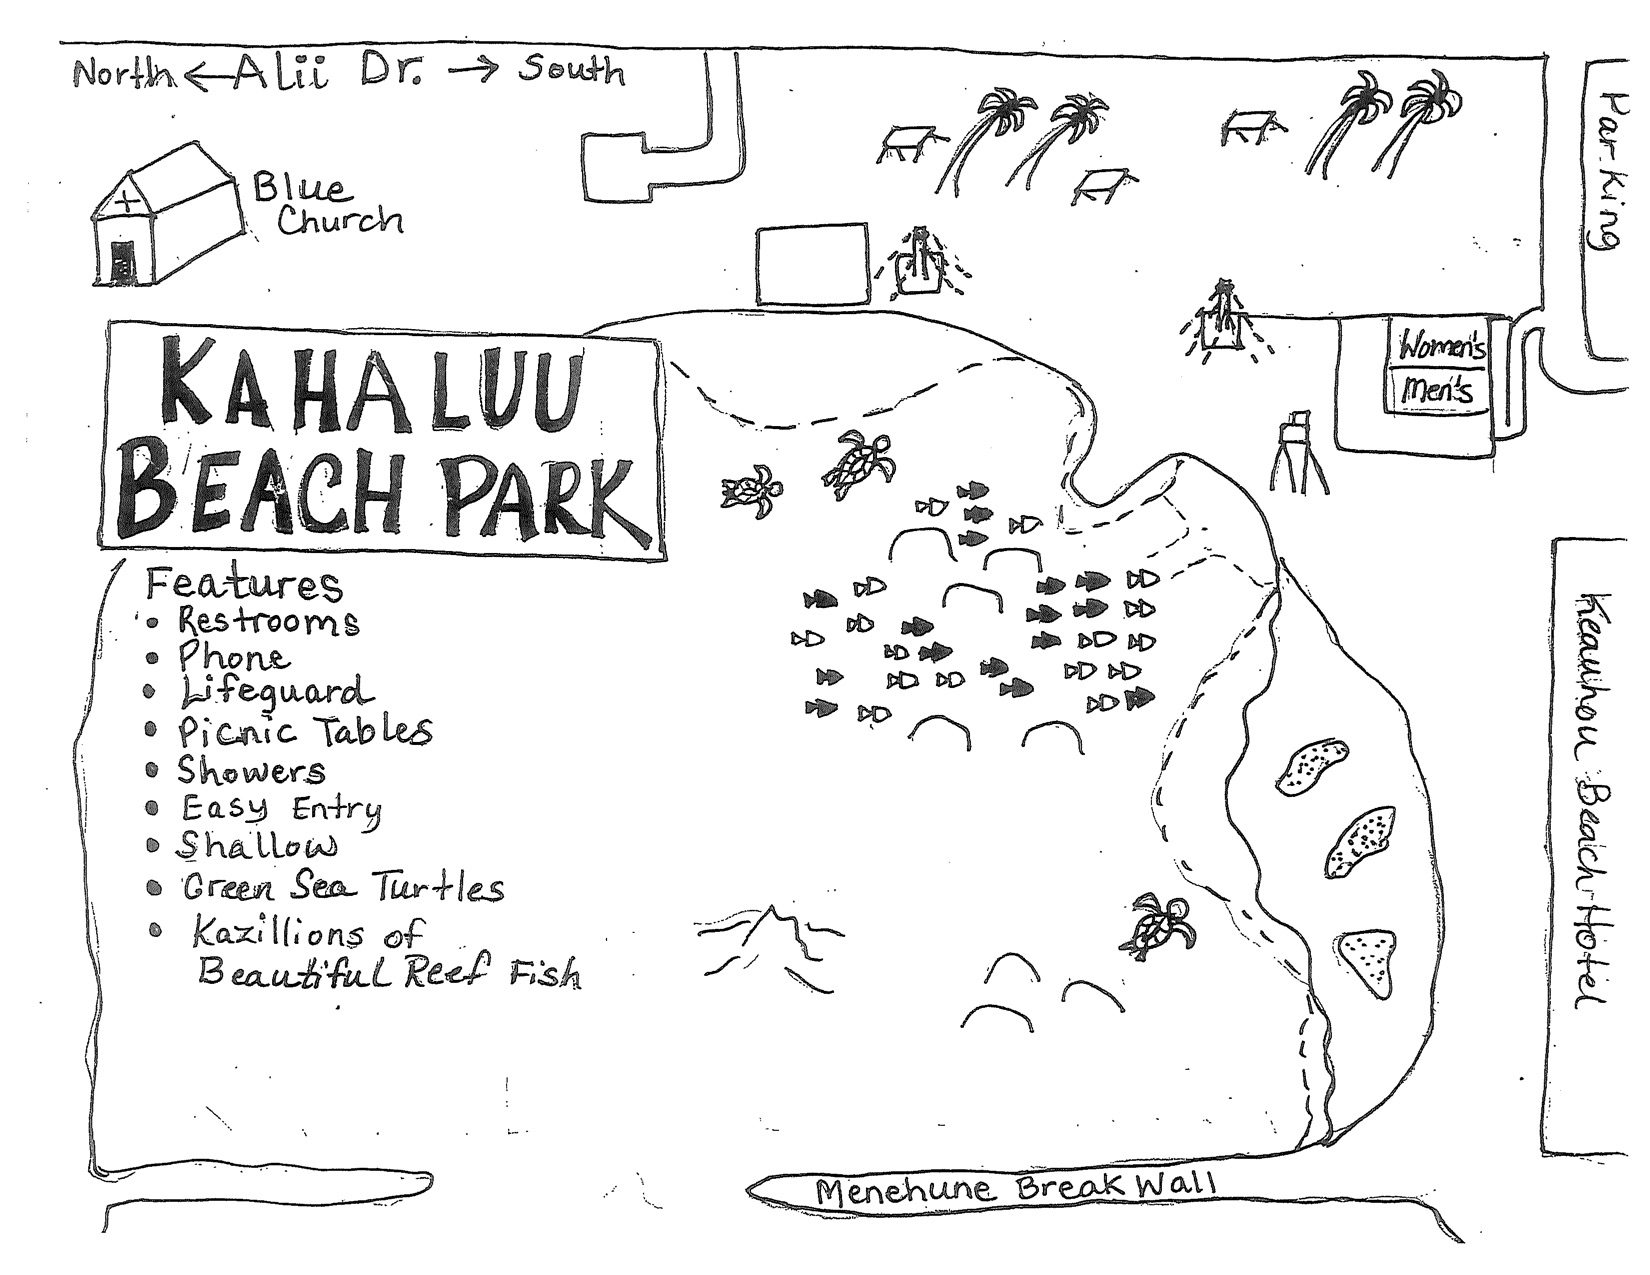 North ← Alii Dr. → South
Parking
Blue
Church
Women's
Men's
KAHALUU
BEACH PARK
Features
• Restrooms
• Phone
• Lifeguard
• Picnic Tables
• Showers
• Easy Entry
• Shallow
• Green Sea Turtles
• Kazillions of
Beautiful Reef Fish
Keauhou Beach Hotel
Menehune Break Wall